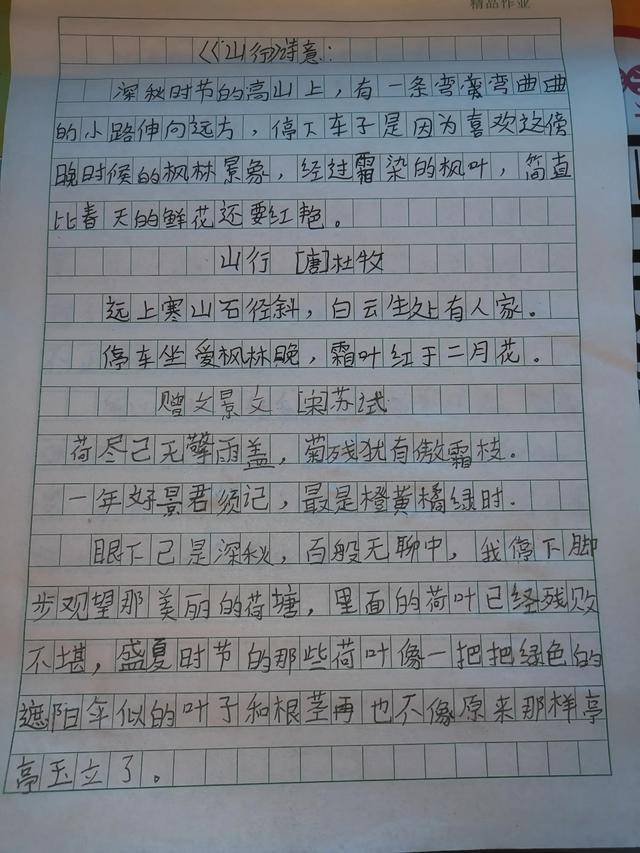 精品作业
《山行》诗意：
深秋时节的高山上，有一条弯弯弯曲曲
的小路伸向远方，停下车子是因为喜欢这傍
晚时候的枫林景象，经过霜染的枫叶，简直
比春天的鲜花还要红艳。
山行 [唐]杜牧
远上寒山石径斜，白云生处有人家。
停车坐爱枫林晚，霜叶红于二月花。
赠文景文 [宋]苏试
荷尽己无擎雨盖，菊残犹有傲霜枝．
一年好景君须记，最是橙黄橘绿时．
眼下己是深秋，百般无聊中，我停下脚
步观望那美丽的荷塘，里面的荷叶已经残败
不堪，盛夏时节的那些荷叶像一把把绿色的
遮阳伞似的叶子和根茎再也不像原来那样亭
亭玉立了。